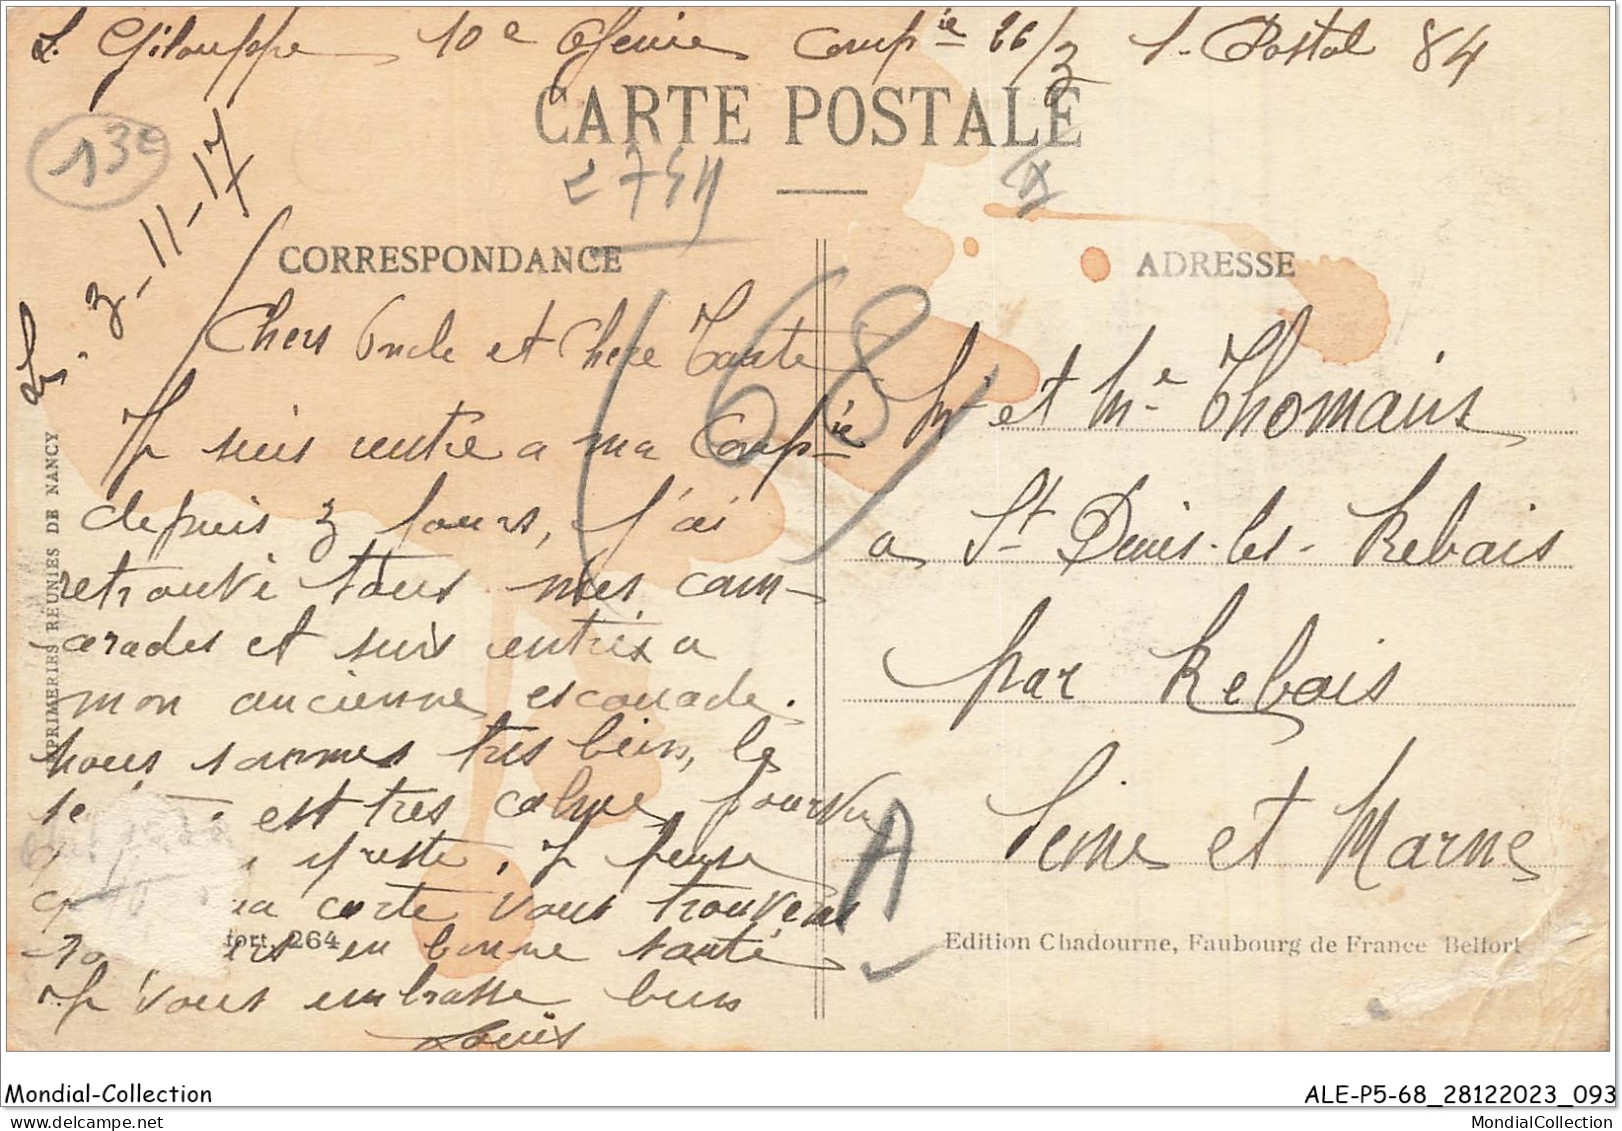 L. 10e Génie Comp ie 26/3 S. Postal 84
CARTE POSTALE
13e
2754
L. 3-11-17
CORRESPONDANCE
ADRESSE
(68)
Chers Oncle et Chere Tante
Je suis rentré a ma Comp ie
depuis 3 jours, j'ai
retrouvé tous mes cam-
arades et suis entrés a
mon ancienne escouade.
nous sommes tres bien, le
est tres calme, pourvu
reste, Je pense
ma carte vous trouvera
en bonne santé
Je vous embrasse bien
Louis
Mr et Me Thomais
a St Denis-les-Rebais
par Rebais
Seine et Marne
A
IMPRIMERIES RÉUNIES DE NANCY
fort. 264
Edition Chadourne, Faubourg de France Belfort
Mondial-Collection
ALE-P5-68_28122023_093
MondialCollection
MondialCollection